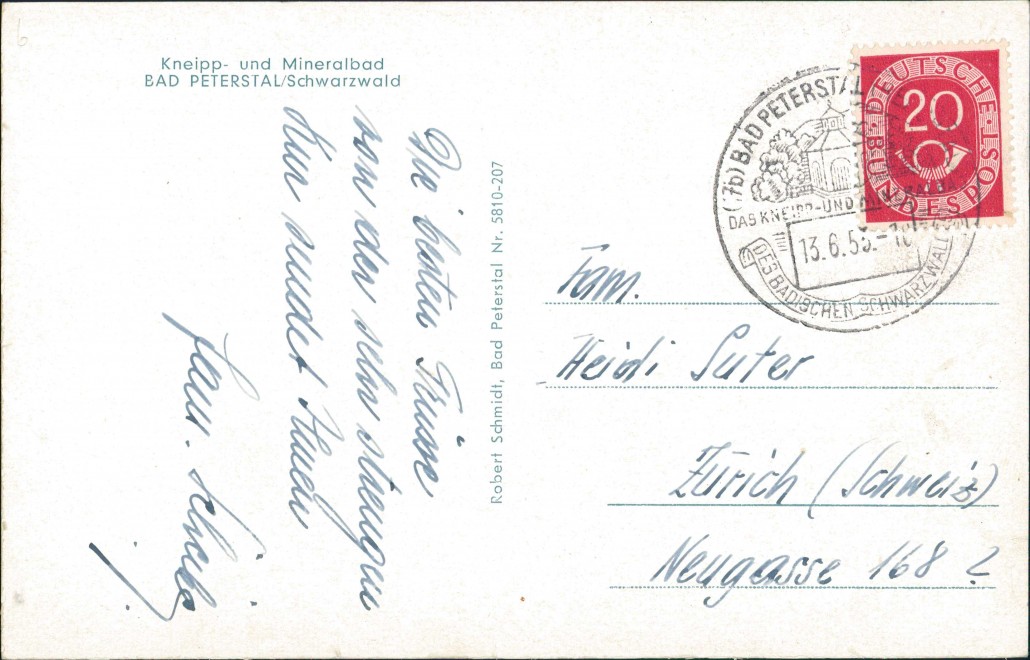 Kneipp- und Mineralbad
BAD PETERSTAL/Schwarzwald
Die besten Grüsse
von der sehr strengen
Kur sendet Ihnen
Fam.
Robert Schmidt, Bad Peterstal Nr. 5810-207
(17b) BAD PETERSTAL
DAS KNEIPP-UND
13.6.55.-18
DES BADISCHEN SCHWARZWALDES
DEUTSCHE BUNDESPOST
20
Fam.
Heidi Suter
Zürich (Schweiz)
Neugasse 168 ?